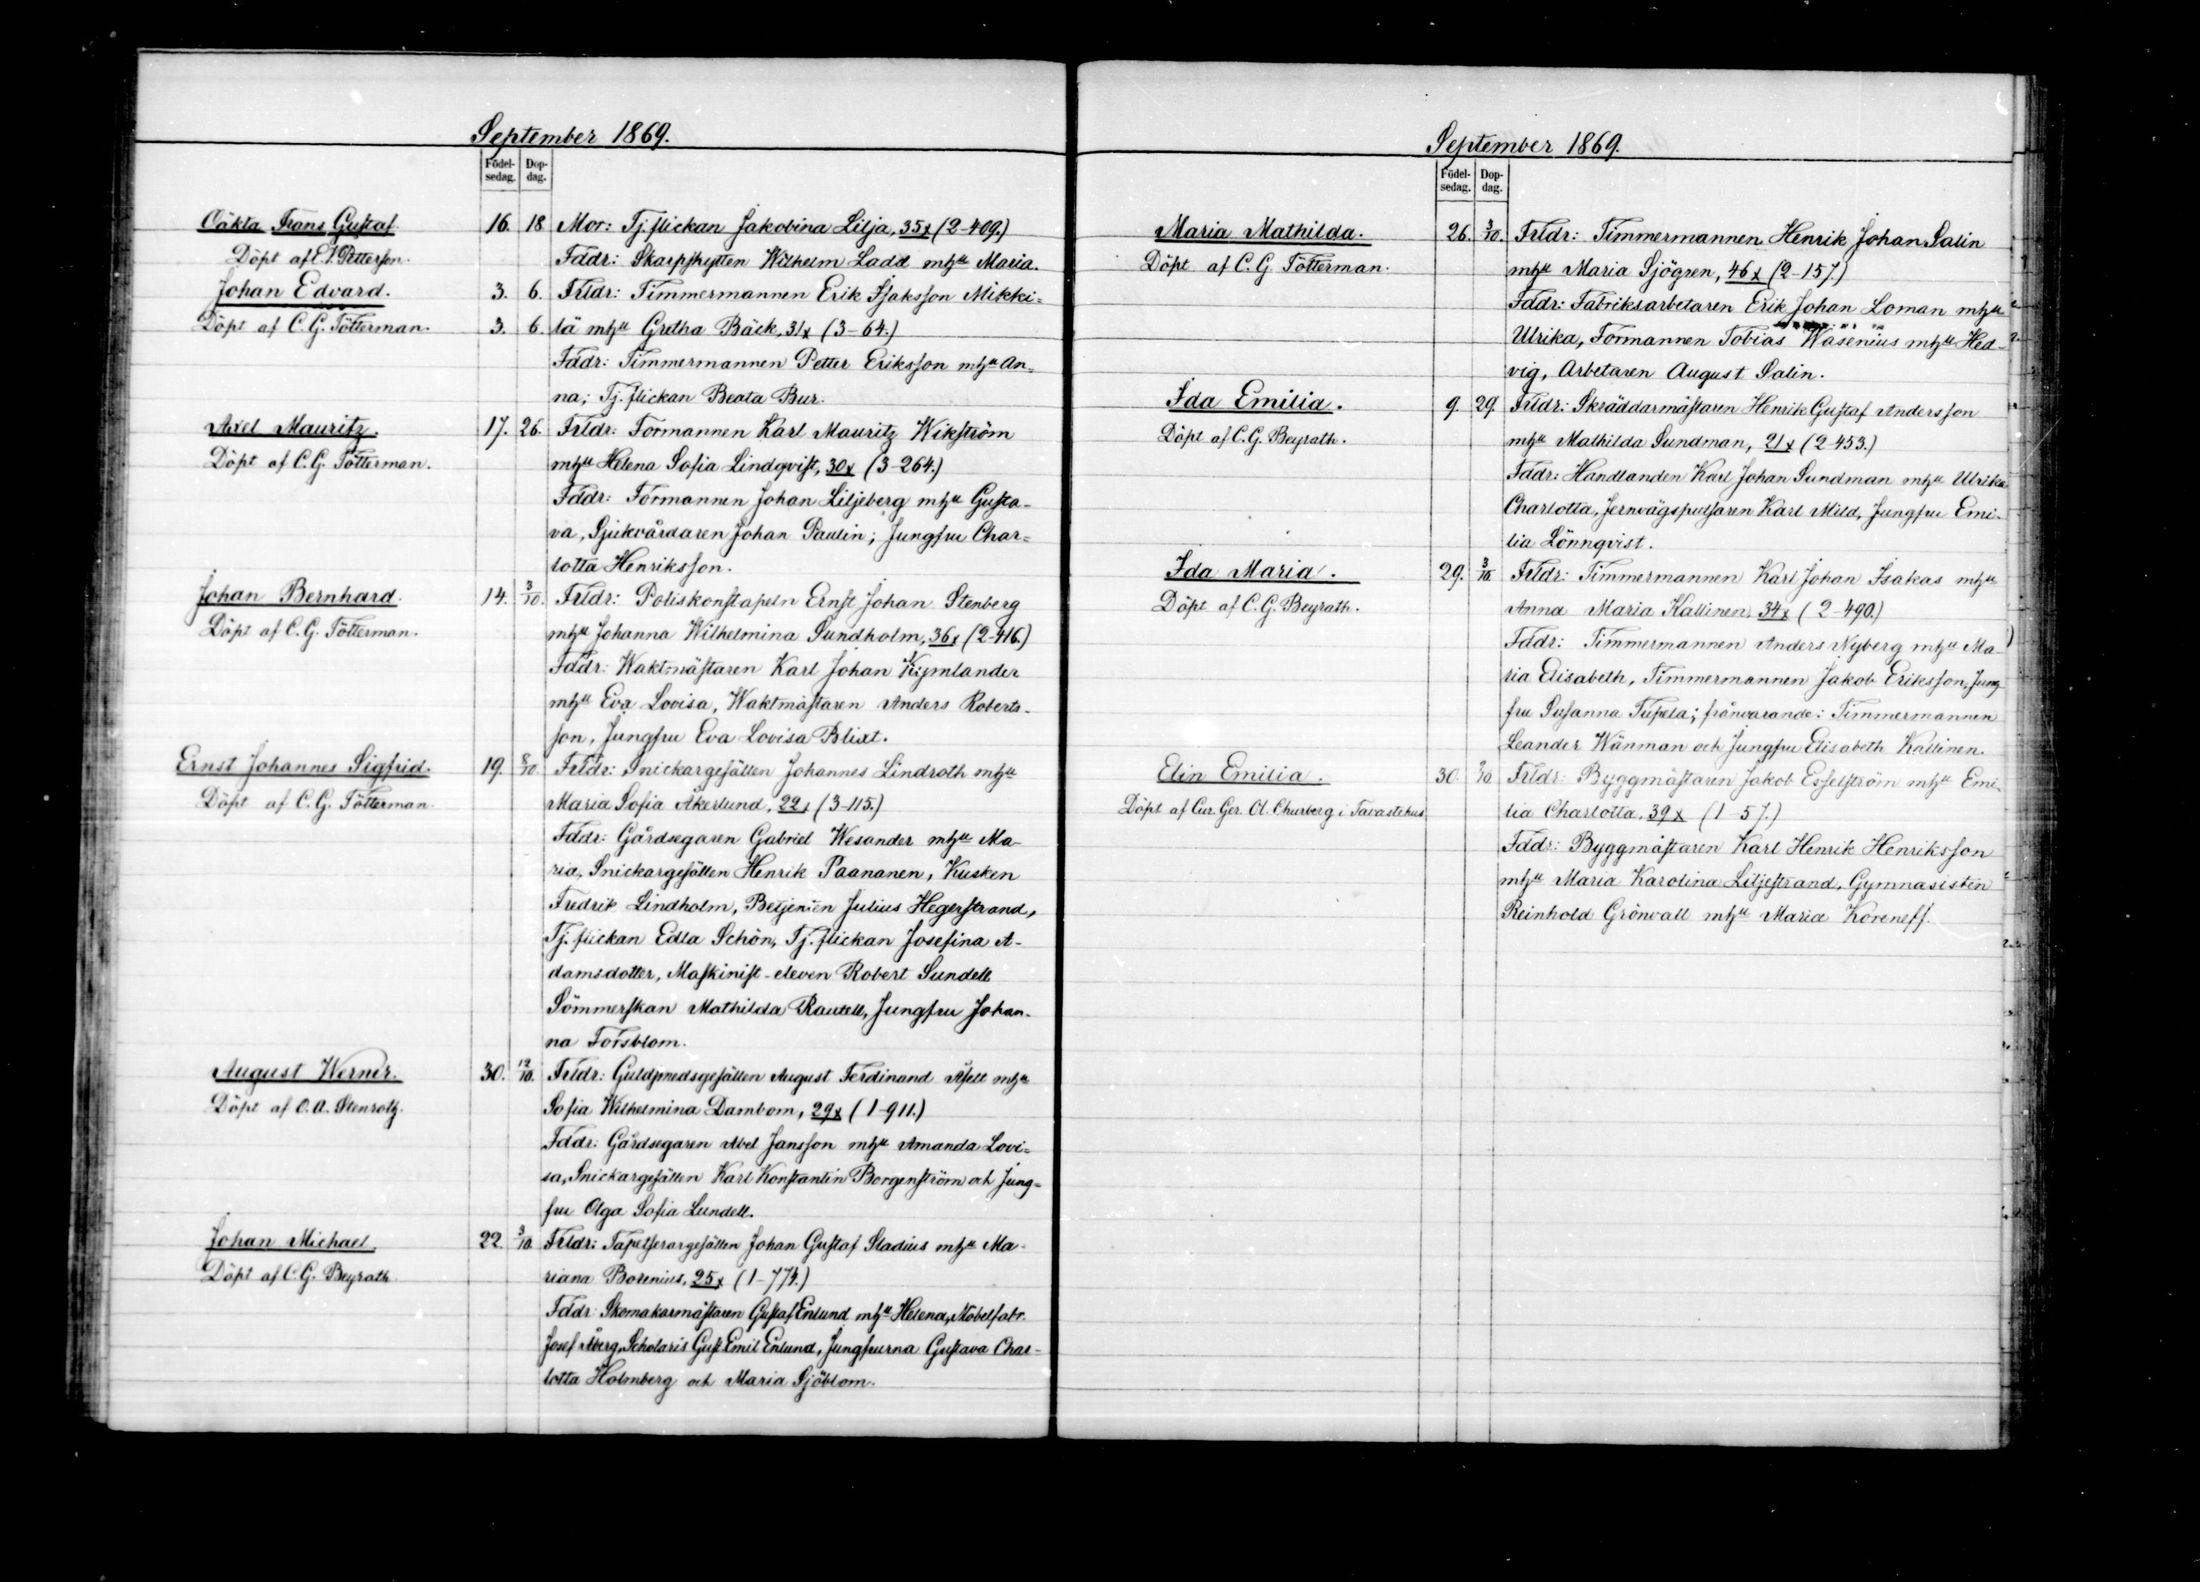 September 1869.
Födel- Dop-
sedag. dag.
Oäkta Frans Gustaf. 16. 18 Mor: Tj. flickan Jakobina Lilja, 35x (2-409.)
Döpt af E. V. Petterson. Fddr: Skarpskytten Wilhelm Ladd mhu Maria.
Johan Edvard. 3. 6. Frldr: Timmermannen Erik Isaksson Mikki-
Döpt af C. G. Tötterman. 3. 6. lä mhu Gretha Bäck, 31x (3-64.)
Fddr: Timmermannen Petter Eriksson mhu An-
na; Tj. flickan Beata Bur.
Axel Mauritz. 17. 26. Frldr: Formannen Karl Mauritz Wikström
Döpt af C. G. Tötterman. mhu Helena Sofia Lindqvist, 30x (3-264.)
Fddr: Formannen Johan Liljeberg mhu Gusta-
va, Sjukvårdaren Johan Paulin; Jungfru Char-
lotta Henriksson.
Johan Bernhard. 14. 3/10. Frldr: Poliskonstapeln Ernst Johan Stenberg
Döpt af C. G. Tötterman. mhu Johanna Wilhelmina Sundholm, 36x (2-416.)
Fddr: Waktmästaren Karl Johan Kymlander
mhu Eva Lovisa, Waktmästaren Anders Roberts-
son, Jungfru Eva Lovisa Blixt.
Ernst Johannes Sigfrid. 19. 8/10. Frldr: Snickargesällen Johannes Lindroth mhu
Döpt af C. G. Tötterman. Maria Sofia Åkerlund, 22x (3-115.)
Fddr: Gårdsegaren Gabriel Wesander mhu Ma-
ria, Snickargesällen Henrik Paananen, Kusken
Fredrik Lindholm, Betjenten Julius Hegerstrand,
Tj. flickan Edla Schön, Tj. flickan Josefina A-
damsdotter, Maskinist-eleven Robert Sundell
Sömmerskan Mathilda Rautell, Jungfru Johan-
na Forsblom.
August Werner. 30. 12/10. Frldr: Guldsmedsgesällen August Ferdinand Asell mhu
Döpt af O. A. Stenroth. Sofia Wilhelmina Dambom, 29x (1-911.)
Fddr: Gårdsegaren Abel Jansson mhu Amanda Lovi-
sa, Snickargesällen Karl Konstantin Borgenström och Jung-
fru Olga Sofia Lundell.
Johan Michael. 22. 3/10. Frldr: Tapetserargesällen Johan Gustaf Stadius mhu Ma-
Döpt af C. G. Beyrath riana Borenius, 25x (1-774.)
Fddr: Skomakarmästaren Gustaf Enlund mhu Helena, Möbelfabr.
Josef Åberg, Scholaris Gust Emil Enlund, Jungfrurna Gustava Char-
lotta Holmberg och Maria Sjöblom.
September 1869.
Födel- Dop-
sedag. dag.
Maria Mathilda. 26. 3/10. Frldr: Timmermannen Henrik Johan Salin
Döpt af C. G. Tötterman. mhu Maria Sjögren, 46x (2-157.)
Fddr: Fabriksarbetaren Erik Johan Loman mhu
Ulrika, Formannen Tobias Wasenius mhu Hed-
vig, Arbetaren August Salin.
Ida Emilia. 9. 29. Frldr: Skräddarmästaren Henrik Gustaf Andersson
Döpt af C. G. Beyrath. mhu Mathilda Sundman, 21x (2-453.)
Fddr: Handlanden Karl Johan Sundman mhu Ulrika
Charlotta, Jernvägsputsaren Karl Mild, Jungfru Emi-
lia Lönnqvist.
Ida Maria. 29. 3/10. Frldr: Timmermannen Karl Johan Isakas mhu
Döpt af C. G. Beyrath. Anna Maria Kallinen, 34x (2-490.)
Fddr: Timmermannen Anders Nyberg mhu Ma-
ria Elisabeth, Timmermannen Jakob Eriksson, Jung-
fru Susanna Tupela; frånvarande: Timmermannen
Leander Wänman och Jungfru Elisabeth Kallinen.
Elin Emilia. 30. Frldr: Byggmästaren Jakob Esselström mhu Emi-
Döpt af Cur. Ger. Ol. Churberg i Tavastehus lia Charlotta, 39x (1-57.)
Fddr: Byggmästaren Karl Henrik Henriksson
mhu Maria Karolina Liljestrand, Gymnasisten
Reinhold Grönvall mhu Maria Koreneff.